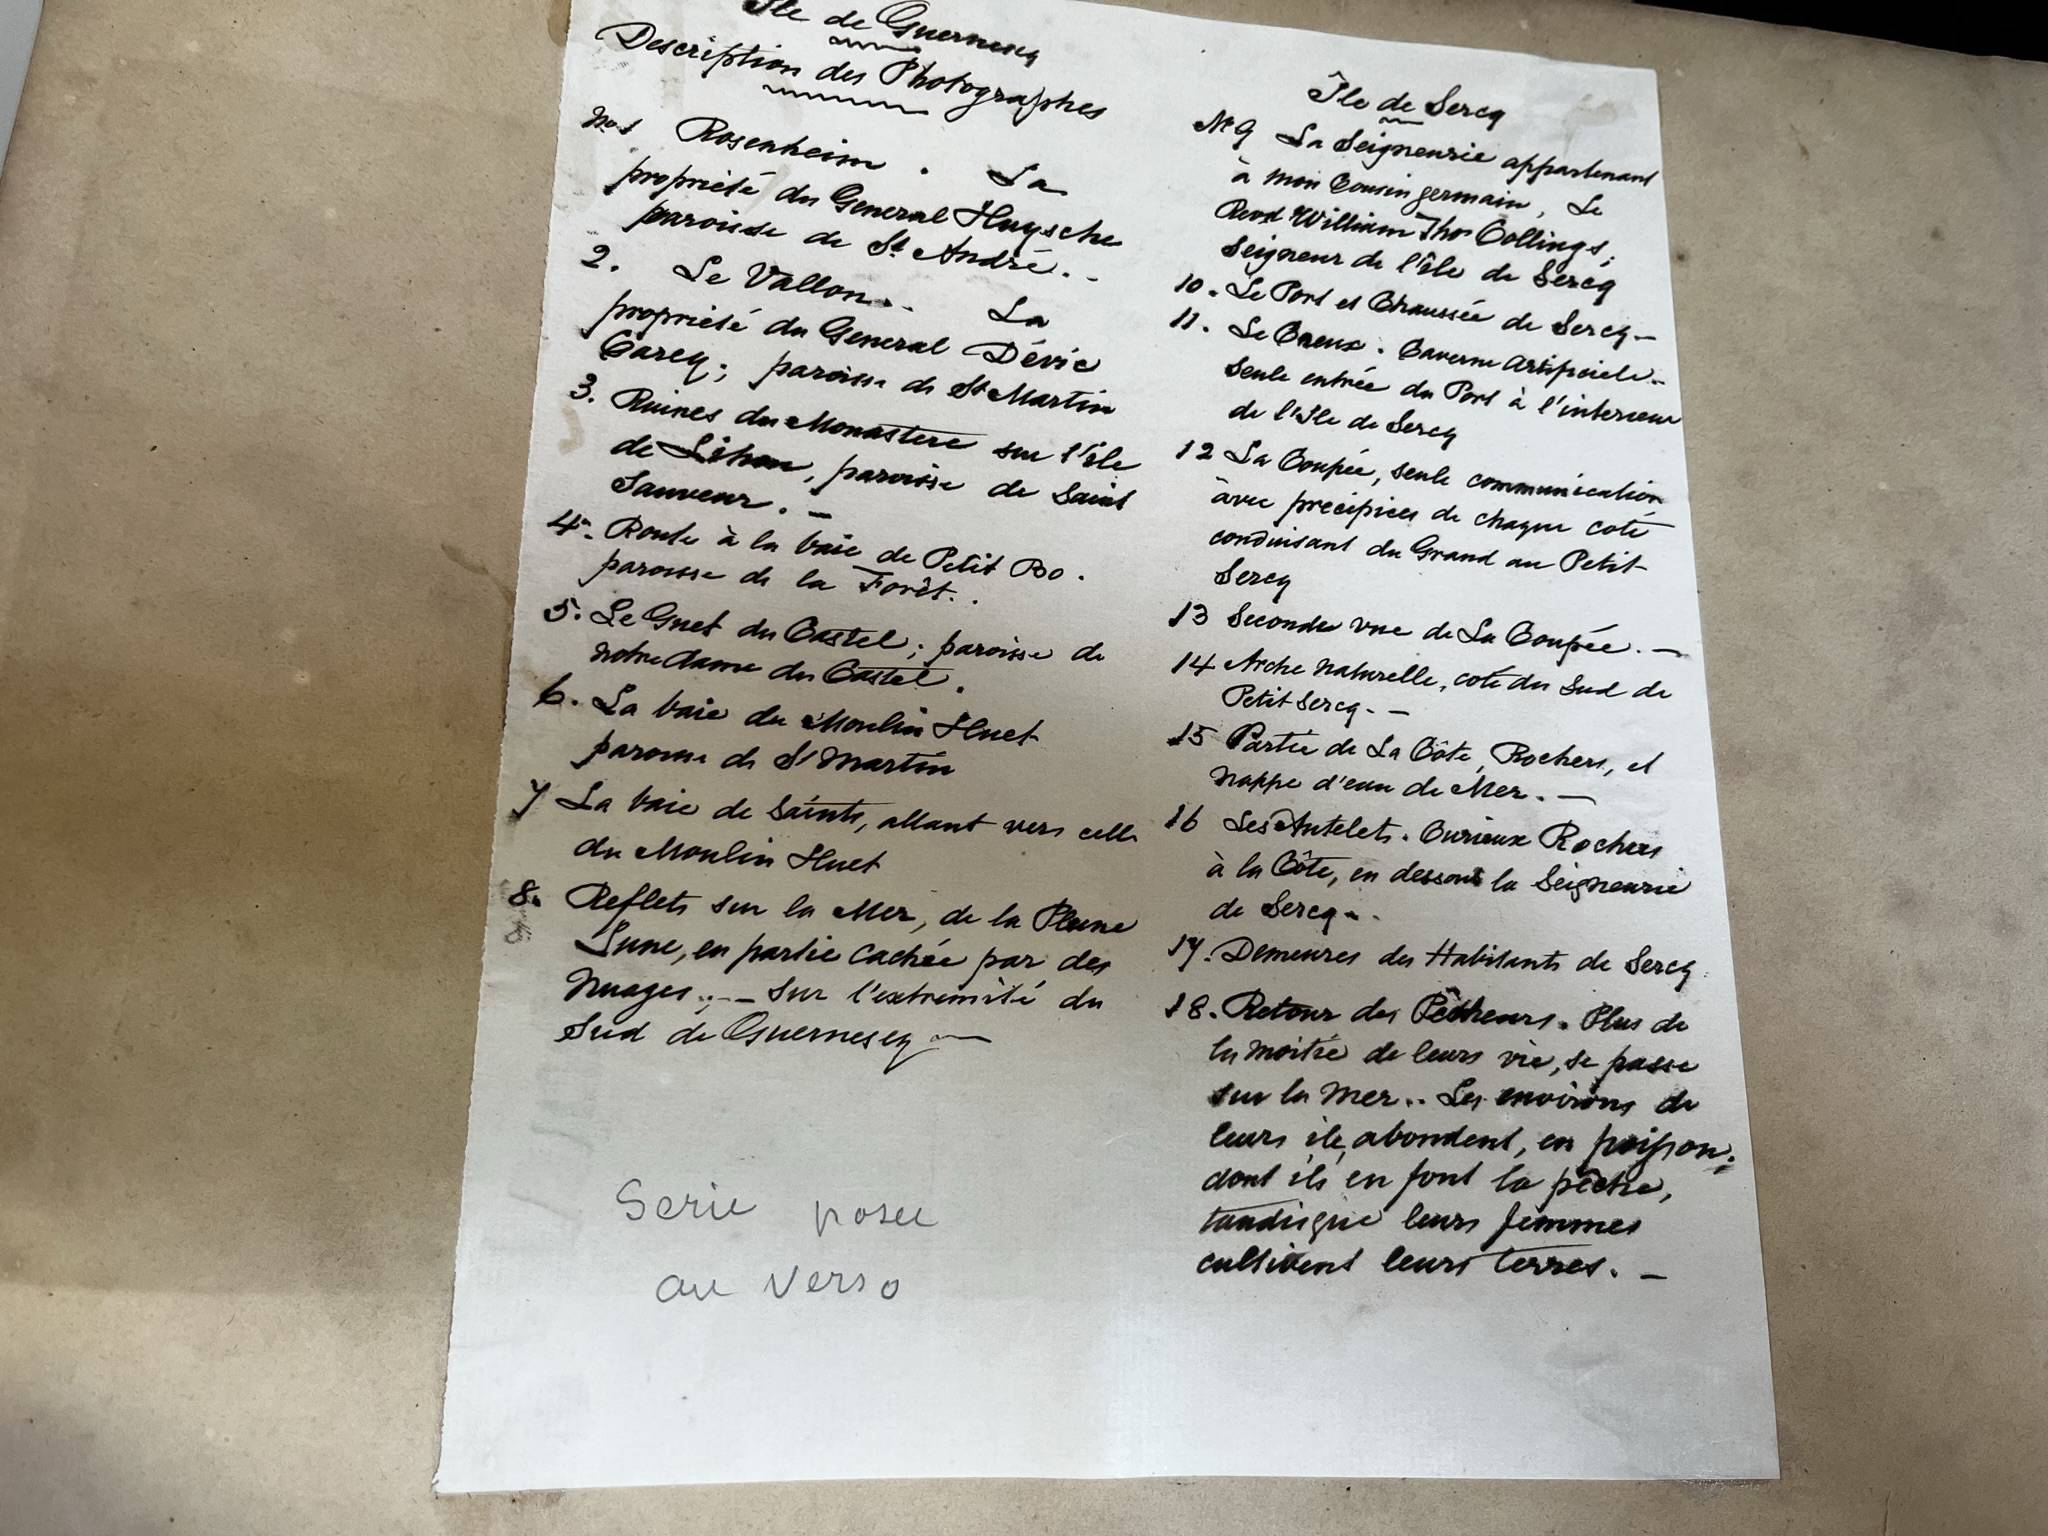 Île de Guernesey
Description des Photographes
No 1 Rosenheim. La
propriété du General Huysche
paroisse de St André. -
2. Le Vallon. . La
propriété du General Dévic
Carey; paroisse de St Martin
3. Ruines du Monastere sur l'île
de Lihou, paroisse de Saint
Sauveur. -
4. Route à la baie de Petit Bo.
paroisse de la Forêt. .
5. Le Guet du Castel; paroisse de
notre dame du Castel.
6. La baie du Moulin Huet
paroisse de St Martin
7 La baie de Saints, allant vers celle
du Moulin Huet
8. Reflets sur la Mer, de la Pleine
Lune, en partie cachée par des
Nuages. . - Sur l'extremité du
Sud de Guernesey -
Serie posee
au verso
Île de Sercq
No 9 La Seigneurie appartenant
à mon Cousin germain, Le
Revd William Thos Collings,
Seigneur de l'île de Sercq
10. Le Port et Chaussée de Sercq -
11. Le Creux. Caverne Artificiele. -
Seule entrée du Port à l'interieur
de l'Ile de Sercq
12 La Coupée, seule communication
àvec precipices de chaque coté
conduisant du Grand au Petit
Sercq
13 Seconde vue de La Coupée. -
14 Arche Naturelle, coté du Sud de
Petit Sercq. -
15 Partie de La Côte, Rochers, et
Nappe d'eau de Mer. -
16 Les Autelets. Curieux Rochers
à la Côte, en dessous la Seigneurie
de Sercq. .
17. Demeures des Habitants de Sercq
18. Retour des Pêcheurs. Plus de
la moitié de leurs vie, se passe
sur la Mer. . Les environs de
leurs île, abondent, en poisson;
dont ils en font la pêche,
tandisque leurs femmes
cultivent leurs terres. -